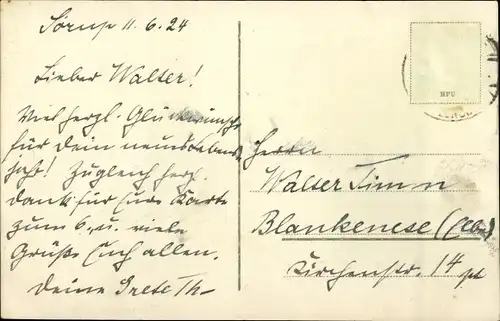 11.6.24
Lieber Walter!
Viel herzl. Glückwünsche
für Dein neues Lebens-
jahr! Zugleich herz.
Dank für Eure Karte
zum 6. u. viele
Grüße Euch allen.
Deine Grete Th-
MPU
Herrn
Walter Timm
Blankenese (Elbe)
Kirchenstr. 14